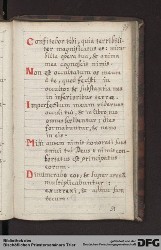 Confitebor tibi, quia terribiliter
magnificatus es: mirabilia
opera tua, & anima
mea cognoscit nimis.
Non est occultatum os meum
à te, quod fecisti in
occulto: & substantia mea
in inferioribus terræ.
Imperfectum meum viderunt
oculi tui, & in libro tuo
omnes scribentur: dies
formabuntur, & nemo
in eis.
Mihi autem nimis honorati sunt
amici tui Deus: nimis confortatus
est principatus
eorum.
Dinumerabo eos, & super arenam
multiplicabuntur:
exurrexi, & adhuc sum
tecum.
DFG